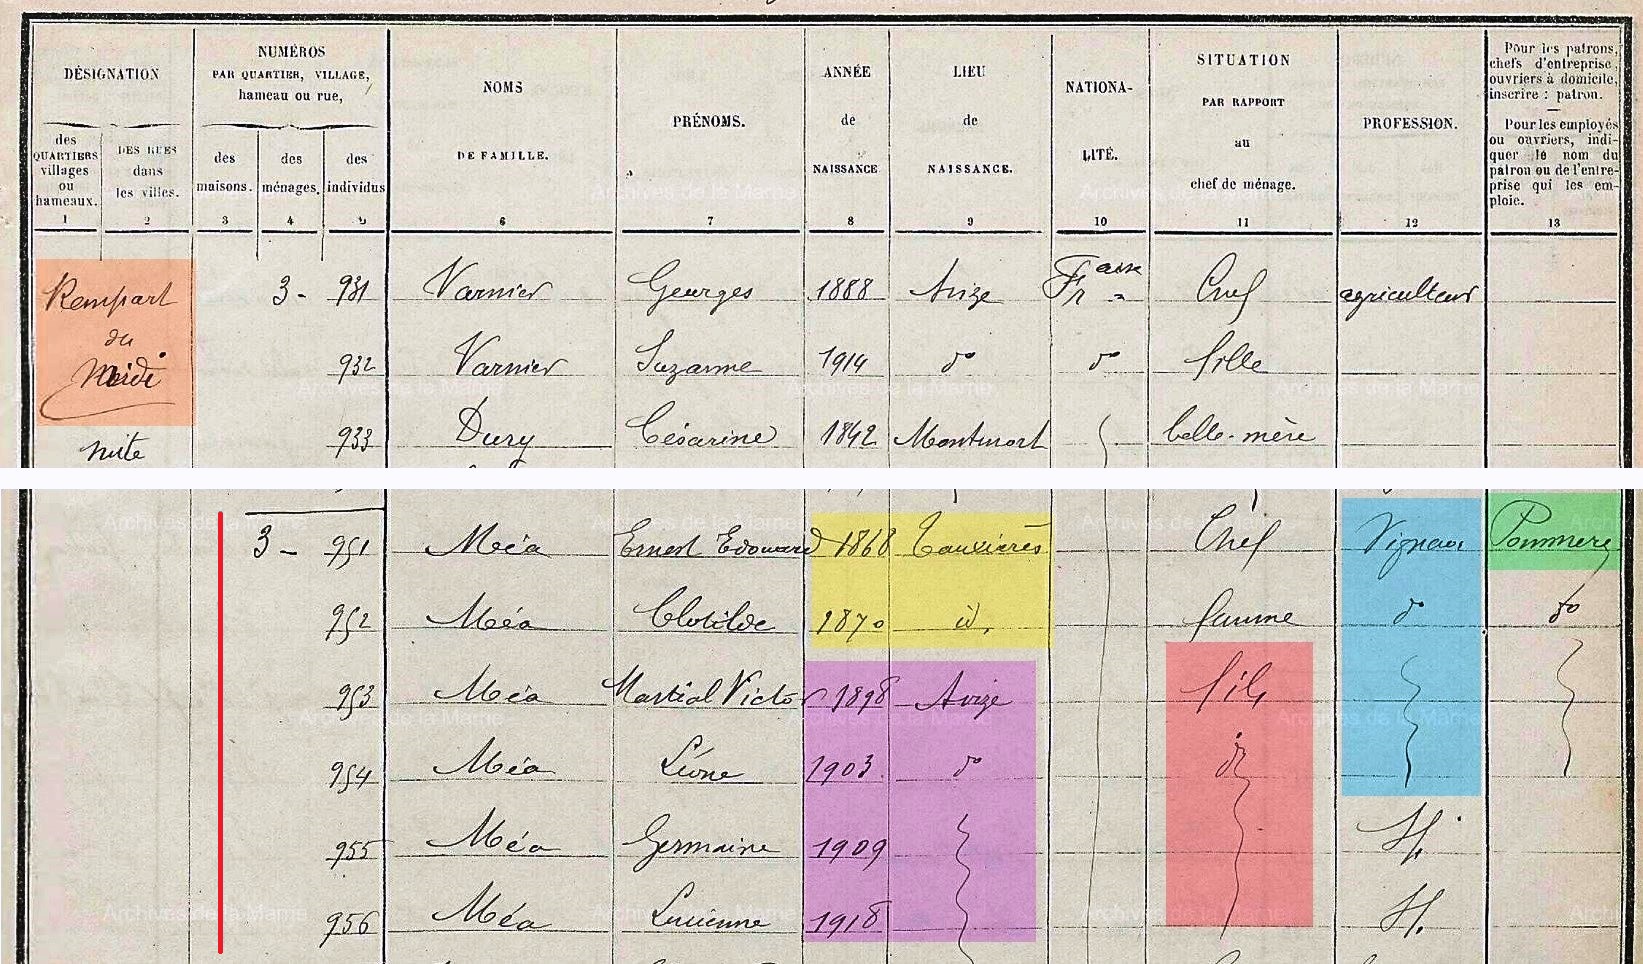 DÉSIGNATION
des QUARTIERS villages ou hameaux.
DES RUES dans les villes.
NUMÉROS PAR QUARTIER, VILLAGE, hameau ou rue,
des maisons.
des ménages.
des individus
NOMS DE FAMILLE.
PRÉNOMS.
ANNÉE de NAISSANCE
LIEU de NAISSANCE.
NATIONA-LITÉ.
SITUATION PAR RAPPORT au chef de ménage.
PROFESSION.
Pour les patrons, chefs d'entreprise, ouvriers à domicile, inscrire : patron.
Pour les employés ou ouvriers, indiquer le nom du patron ou de l'entreprise qui les emploie.
1 2 3 4 5 6 7 8 9 10 11 12 13
Rempart du Midi
3 - 931 Varnier Georges 1888 Avize Fr aise Chef agriculteur
932 Varnier Suzanne 1914 do do fille
933 Dury Césarine 1842 Montmort belle-mère
suite
3 - 951 Méa Ernest Edouard 1868 Tauxières Chef Vignon Pommery
952 Méa Clotilde 1870 id. femme do do
953 Méa Martial Victor 1898 Avize fils
954 Méa Léone 1903 do do
955 Méa Germaine 1909
956 Méa Lucienne 1918
Archives de la Marne